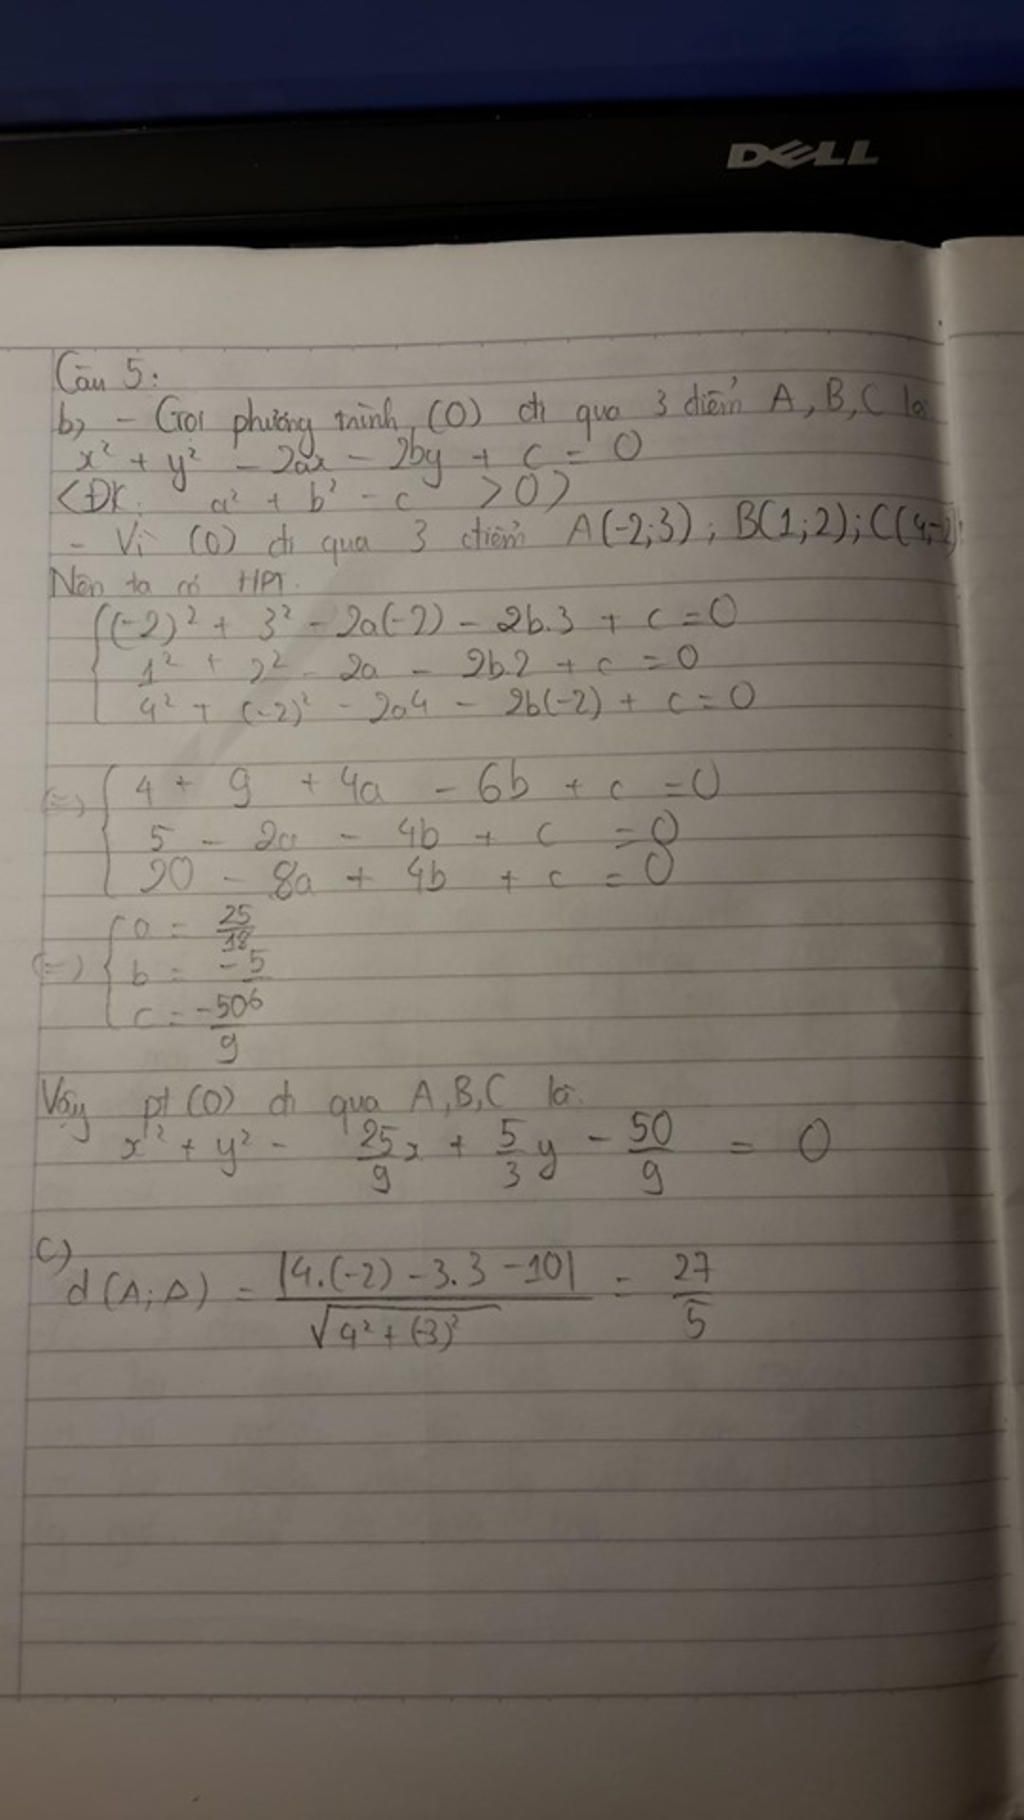 DELL
Câu 5:
b, - Gọi phương trình (O) đi qua 3 điểm A, B, C là
x² + y² - 2ax - 2by + c = 0
<ĐK: a² + b² - c > 0>
- Vì (O) đi qua 3 điểm A(-2;3); B(1;2); C(4;-2)
Nên ta có HPT.
(-2)² + 3² - 2a(-2) - 2b.3 + c = 0
1² + 2² - 2a - 2b.2 + c = 0
4² + (-2)² - 2a4 - 2b(-2) + c = 0
(=) 4 + 9 + 4a - 6b + c = 0
5 - 2a - 4b + c = 0
20 - 8a + 4b + c = 0
a = 25/18
(=) b = -5/6
c = -50/9
Vậy pt (O) đi qua A, B, C là.
x² + y² - 25/9 x + 5/3 y - 50/9 = 0
c)
d(A; Δ) = |4.(-2) - 3.3 - 10| / √4² + (-3)² = 27/5